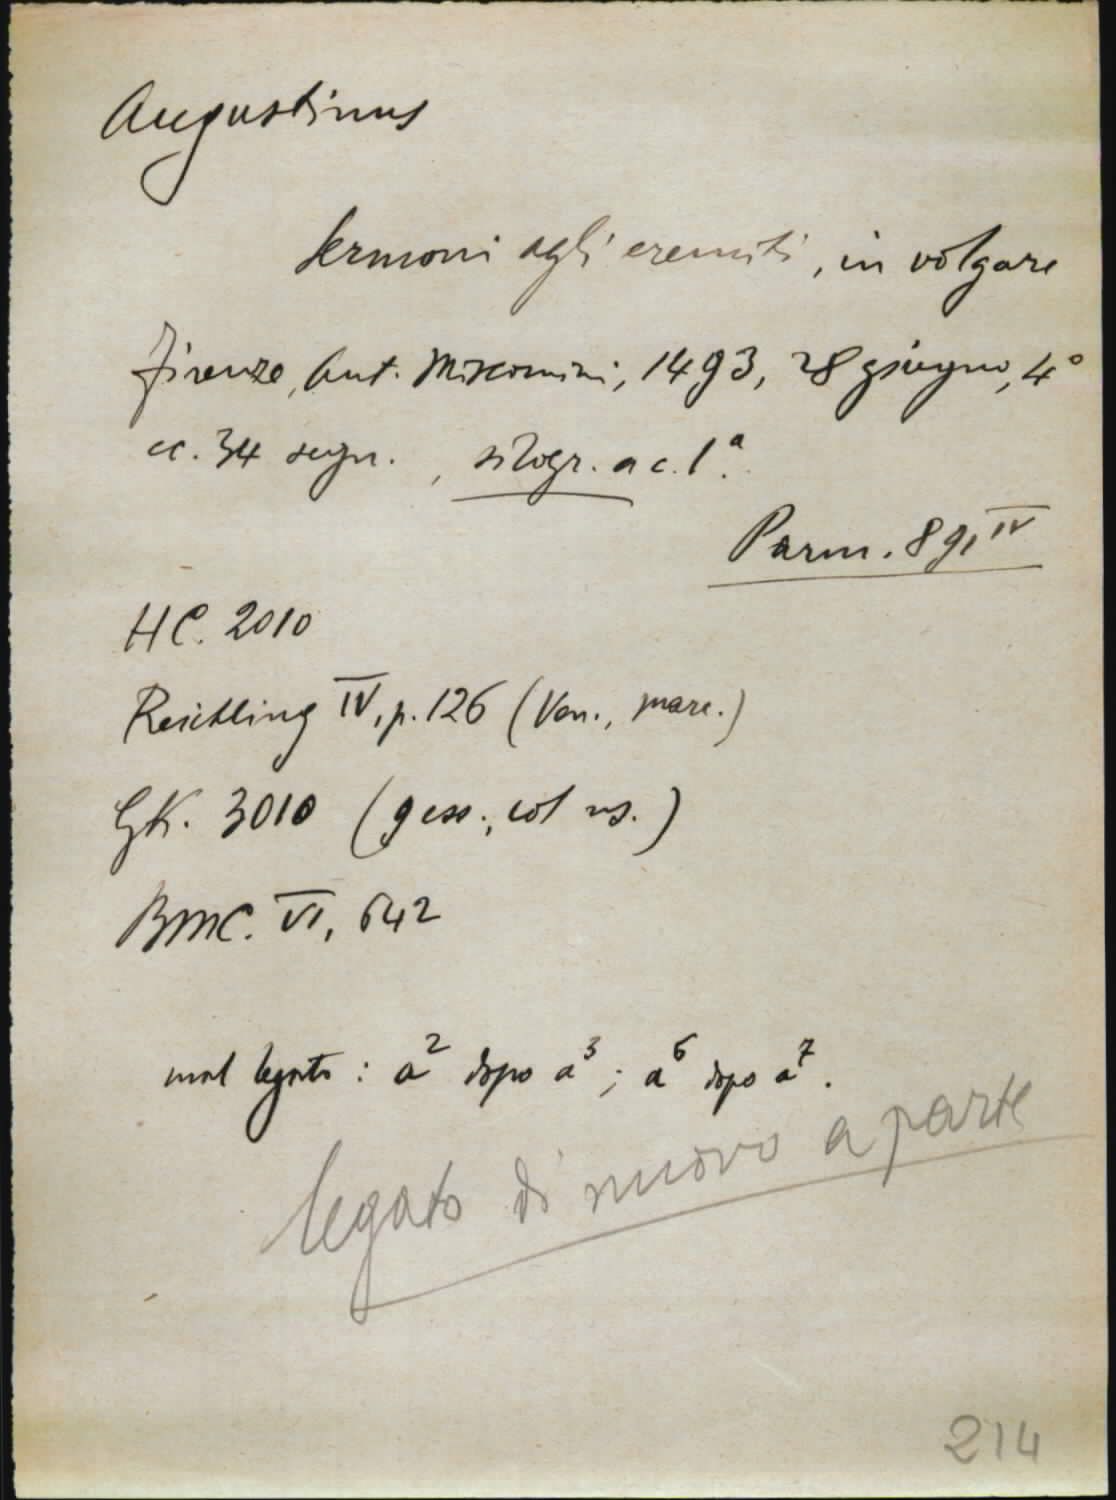 Augustinus
Sermoni agli eremiti, in volgare
Firenze, Ant. Miscomini, 1493, 28 giugno, 4°
cc. 34 segn., silogr. a c. 1ª.
Parm. 891 IV
HC. 2010
Reichling IV, p. 126 (Ven., marc.)
GK. 3010 (gess.; col us.)
BMC. VI, 642
mal legato: a² dopo a³; a⁶ dopo a⁷.
legato di nuovo a parte
214